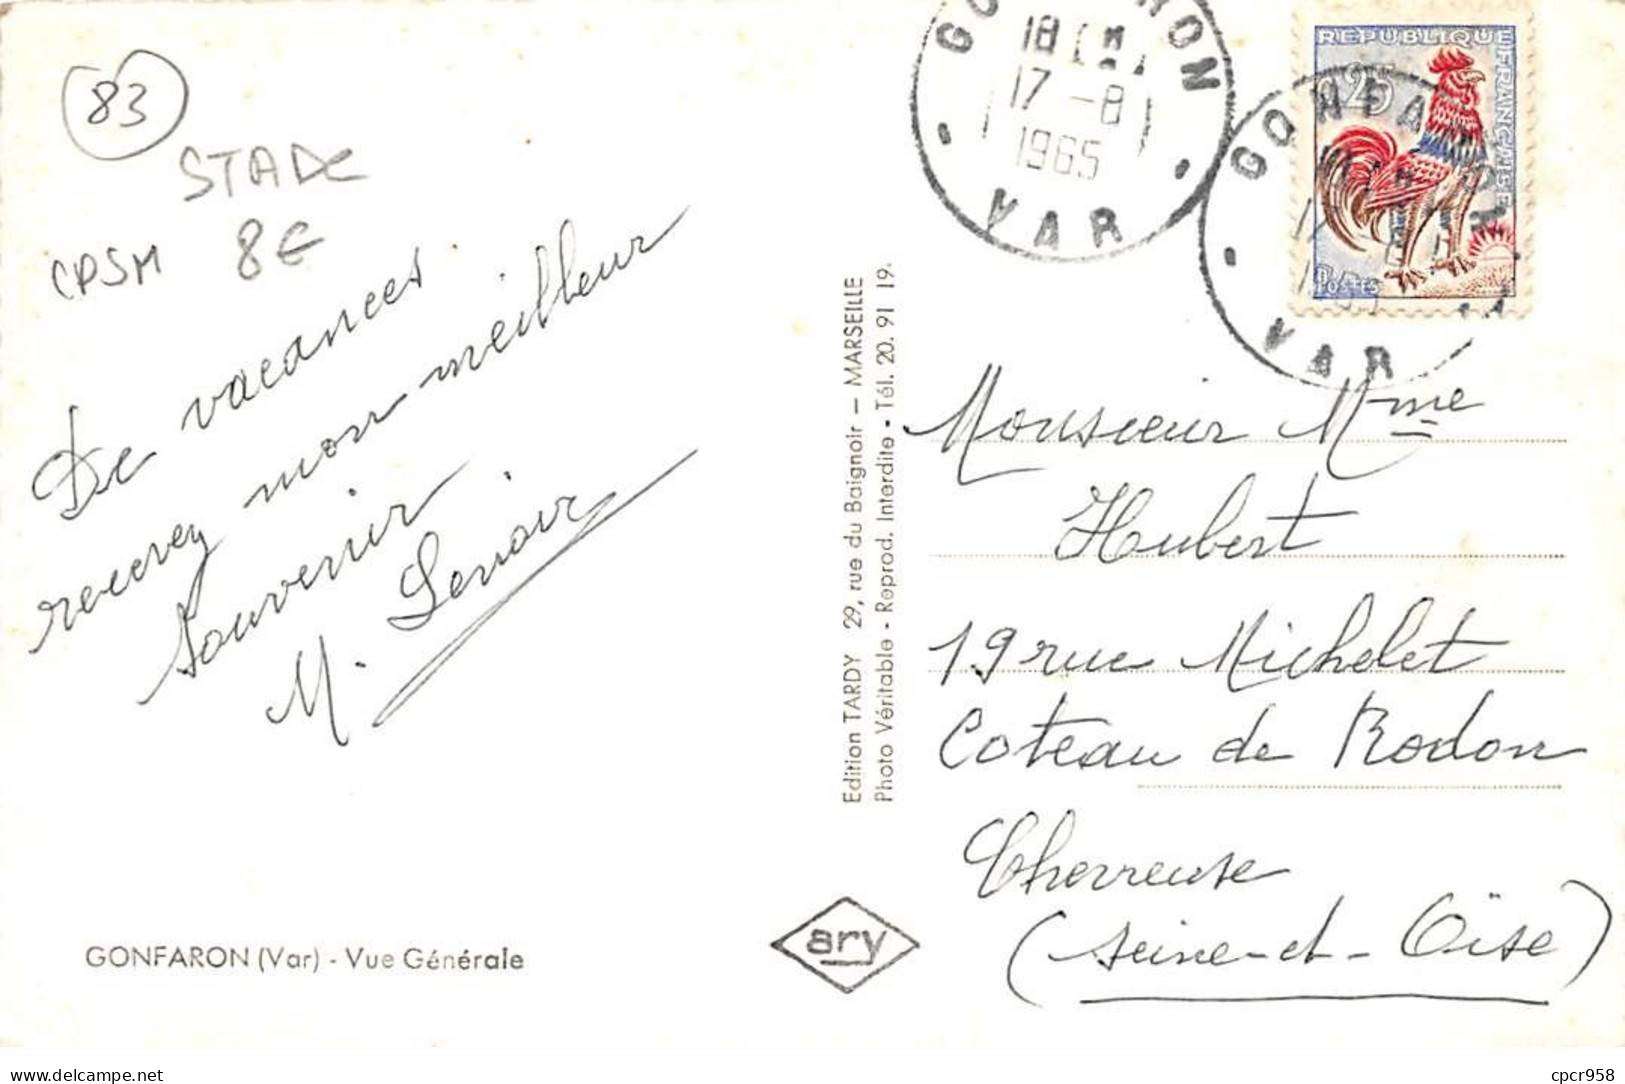 83
STADE
CPSM 8€
De vacances
recevez mon meilleur
souvenir.
M. Lenoir
GONFARON (Var) - Vue Générale
Edition TARDY 29, rue du Baignoir - MARSEILLE
Photo Véritable - Reprod. Interdite - Tél. 20. 91 19.
ary
18 H
17 -8
1965
VAR
REPUBLIQUE FRANÇAISE
0,25
POSTES
GONFARON
VAR
Monsieur Mme
Hubert
19 rue Michelet
Coteau de Rodon
Chevreuse
(Seine-et-Oise)
delcampe.net
cpcr958